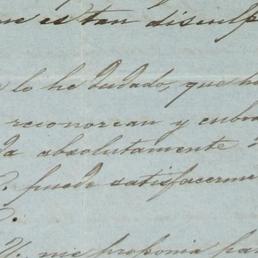 que es tan disculp
lo he dudado, que ha
reconozcan y
da absolutamente
V. puede satisfacerme
V. me proponia par